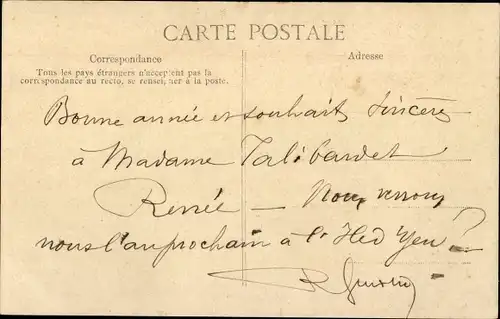 CARTE POSTALE
Correspondance
Adresse
Tous les pays étrangers n'acceptent pas la
correspondance au recto, se renseigner à la poste.
Bonne année et souhaits sincères
à Madame Talibardet
Renée —
nous l'an prochain à